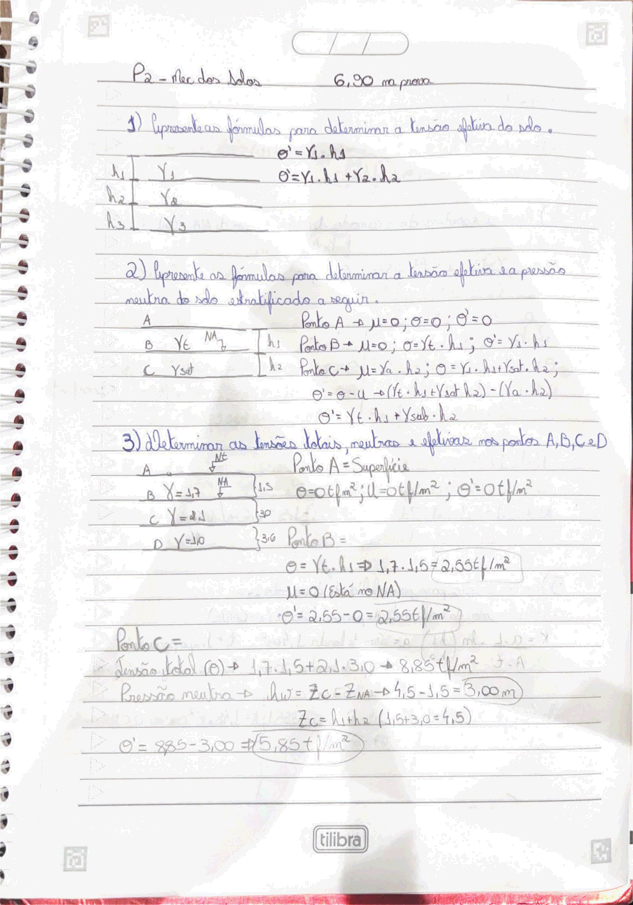 P2 - Mec dos Solos 6,90 na prova
1) Apresente as fórmulas para determinar a tensão efetiva do solo.
h1 γ1 σ' = γ1.h1
h2 γ2 σ' = γ1.h1 + γ2.h2
h3 γ3
2) Apresente as fórmulas para determinar a tensão efetiva e a pressão
neutra do solo estratificado a seguir.
A Ponto A → μ=0; σ=0; σ'=0
B γt NA h1 Ponto B → μ=0; σ=γt.h1; σ'=γ1.h1
C γsat h2 Ponto C → μ=γa.h2; σ=γ1.h1+γsat.h2;
σ'=σ-u → (γt.h1+γsat h2)-(γa.h2)
σ'=γt.h1+γsub.h2
3) Determinar as tensões totais, neutras e efetivas nos pontos A, B, C e D
A Nt Ponto A = Superfície
B γ=1,7 NA 1,5 σ=0tf/m²; U=0tf/m²; σ'=0tf/m²
C γ=2,1 3,0
D Ponto B =
σ = γt.h1 ⇒ 1,7.1,5 = 2,55tf/m²
μ=0 (Está no NA)
σ'=2,55-0=2,55tf/m²
Ponto C =
Tensão total (σ) → 1,7.1,5+2,1.3,0 → 8,85tf/m²
Pressão neutra → hw = Zc = ZNA → 4,5-1,5 = 3,00m
Zc=h1+h2 (1,5+3,0=4,5)
σ'= 8,85-3,00 ⇒ 5,85tf/m²
tilibra